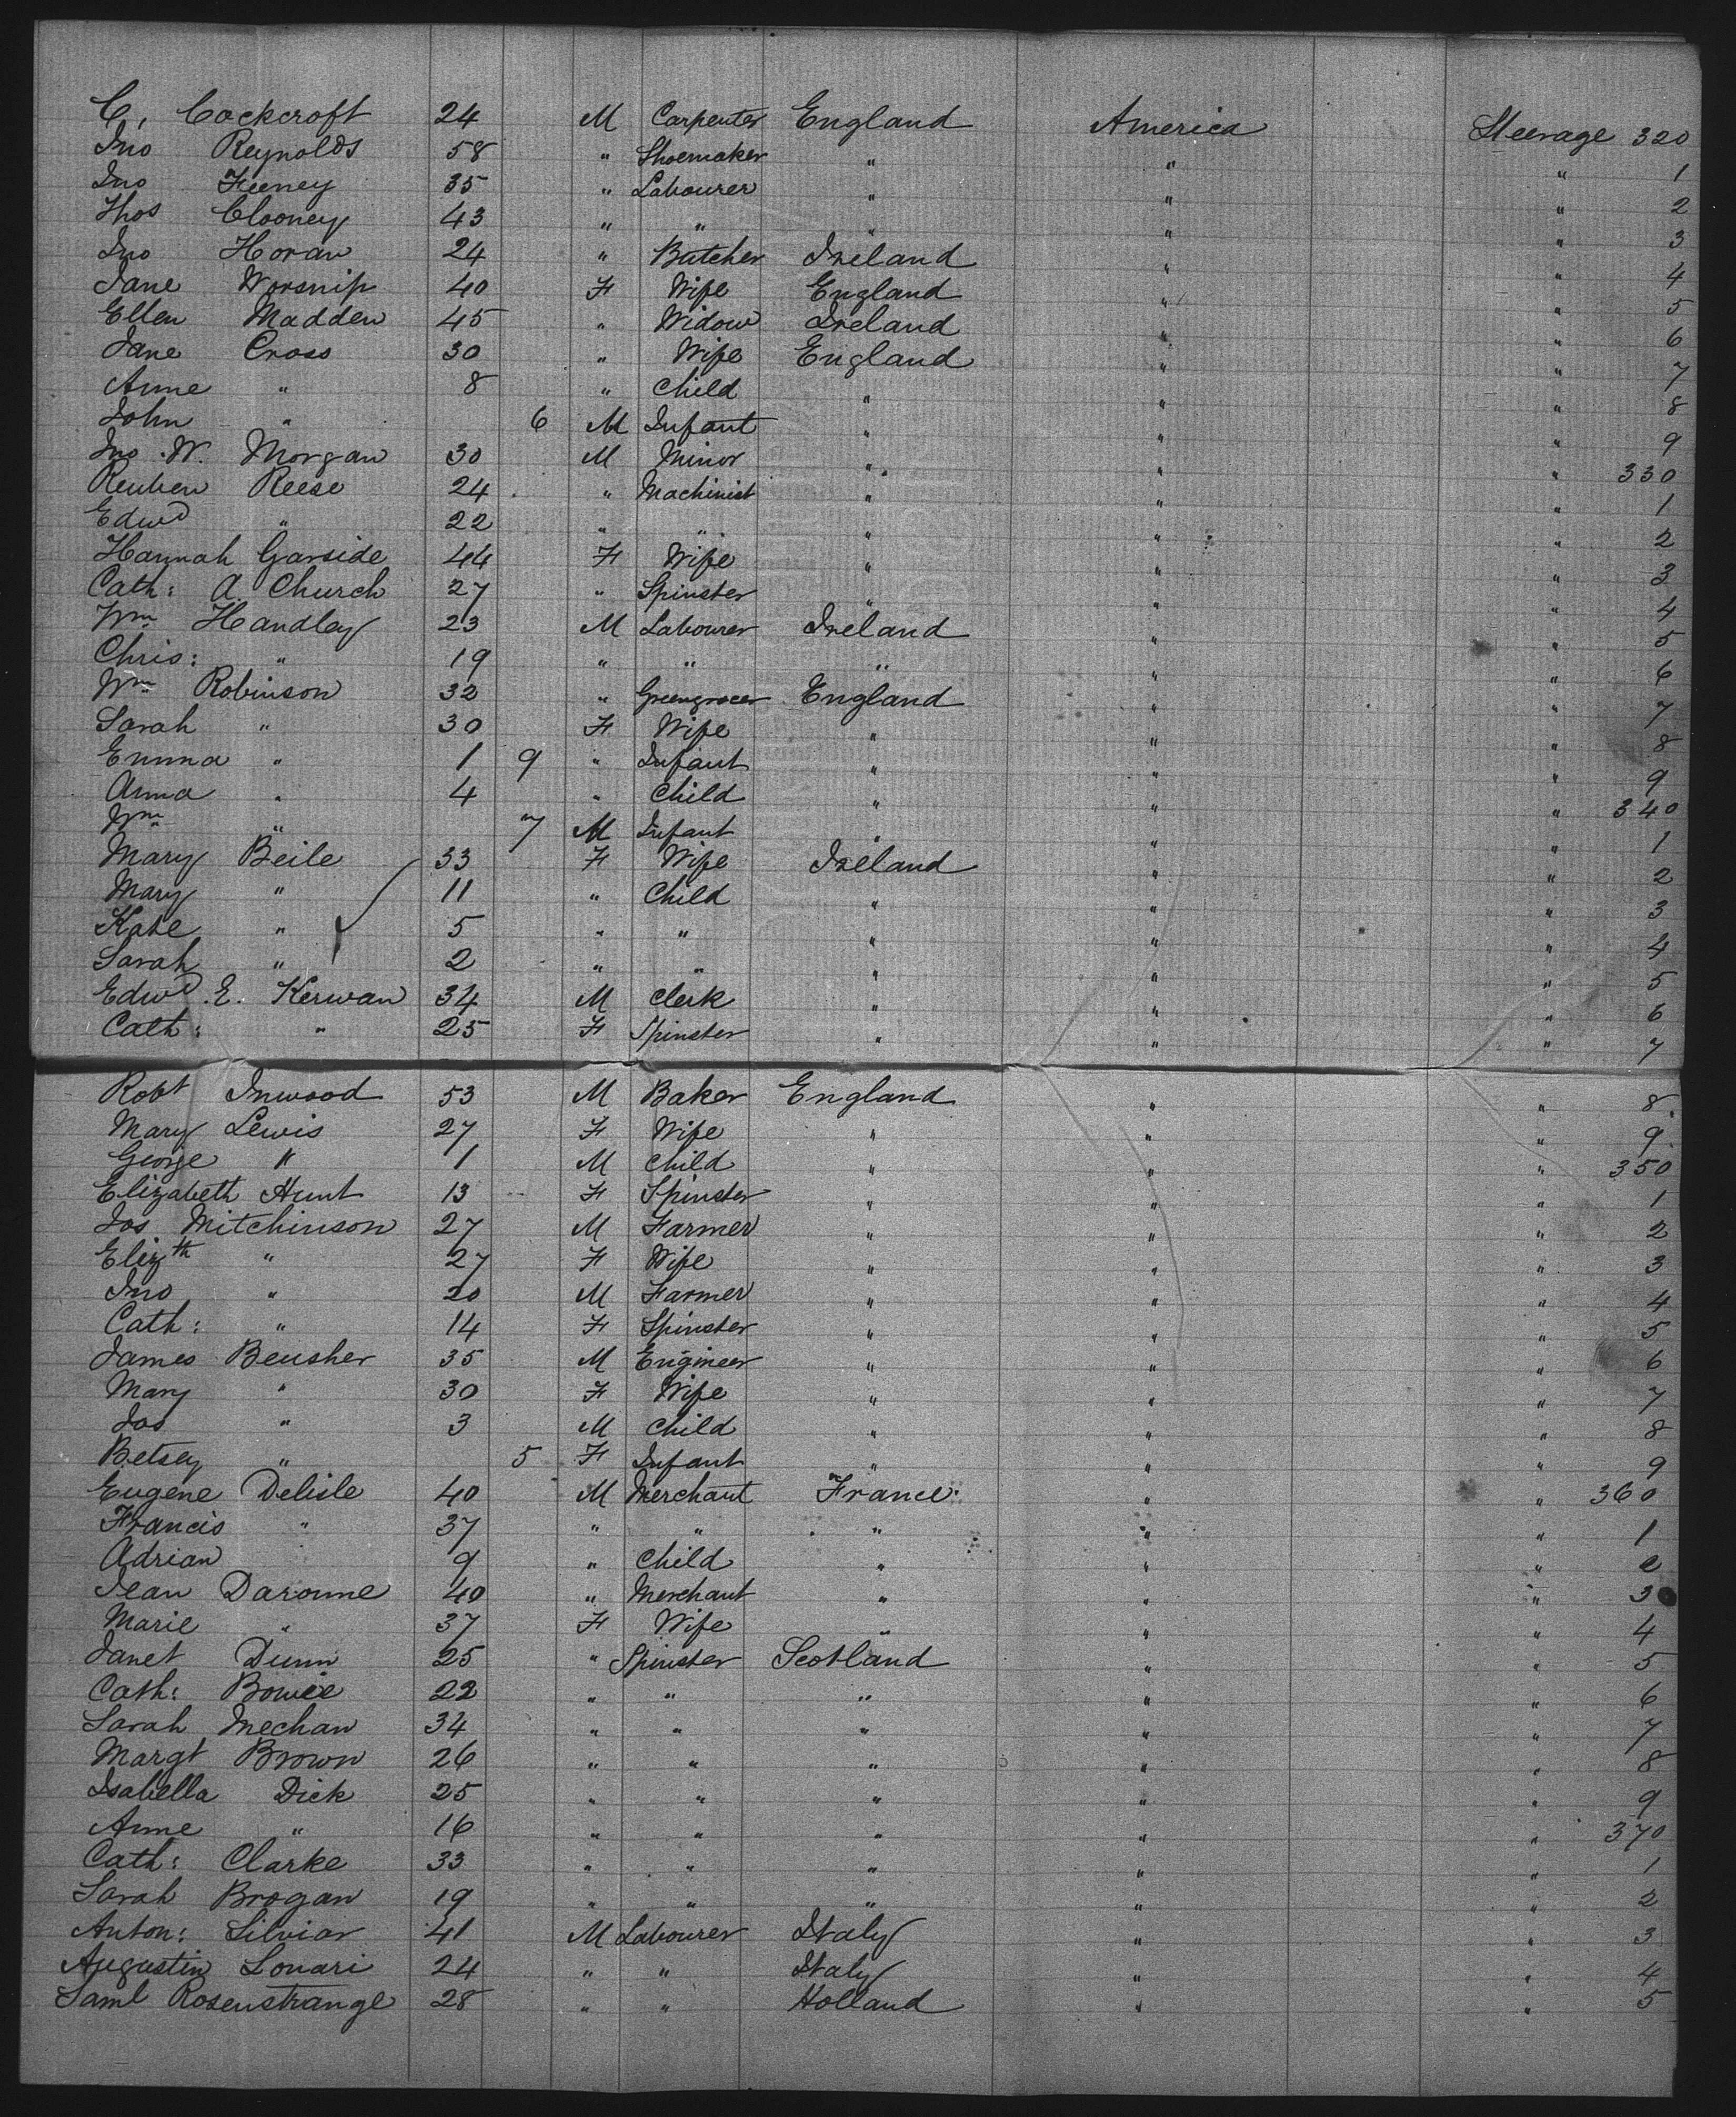 C, Cockcroft 24 M Carpenter England America Steerage 320
Jno Reynolds 58 " Shoemaker " " " 1
Jno Feeney 35 " Labourer " " " 2
Thos Clooney 43 " " " " " 3
Jno Horan 24 " Butcher Ireland " " 4
Jane Worsnip 40 F Wife England " " 5
Ellen Madden 45 " Widow Ireland " " 6
Jane Cross 30 " Wife England " " 7
Anne " 8 " Child " " " 8
John " 6 M Infant " " " 9
Jno. W. Morgan 30 M Minor " " " 330
Reuben Reese 24 " Machinist " " " 1
Edwd " 22 " " " " " 2
Hannah Garside 44 F Wife " " " 3
Cath: A. Church 27 " Spinster " " " 4
Wm Handley 23 M Labourer Ireland " " 5
Chris: " 19 " " " " " 6
Wm Robinson 32 " Greengrocer England " " 7
Sarah " 30 F Wife " " " 8
Emma " 1 9 " Infant " " " 9
Anna " 4 " Child " " " 340
Wm " 7 M Infant " " " 1
Mary Beile 33 F Wife Ireland " " 2
Mary " 11 " Child " " " 3
Kate " 5 " " " " " 4
Sarah " 2 " " " " " 5
Edwd. E. Kerwan 34 M Clerk " " " 6
Cath: " 25 F Spinster " " " 7
Robt Inwood 53 M Baker England " " 8
Mary Lewis 27 F Wife " " " 9
George " 1 M Child " " " 350
Elizabeth Hunt 13 F Spinster " " " 1
Jos Mitchinson 27 M Farmer " " " 2
Elizth " 27 F Wife " " " 3
Jno " 20 M Farmer " " " 4
Cath: " 14 F Spinster " " " 5
James Beusher 35 M Engineer " " " 6
Mary " 30 F Wife " " " 7
Jos " 3 M Child " " " 8
Betsey " 5 F Infant " " " 9
Eugene Delisle 40 M Merchant France " " 360
Francis " 37 " " " " " 1
Adrian " 9 " Child " " " 2
Jean Daronne 40 " Merchant " " " 3
Marie " 37 F Wife " " " 4
Janet Dunn 25 " Spinster Scotland " " 5
Cath: Bowie 22 " " " " " 6
Sarah Mechan 34 " " " " " 7
Margt Brown 26 " " " " " 8
Isabella Dick 25 " " " " " 9
Anne " 16 " " " " " 370
Cath: Clarke 33 " " " " " 1
Sarah Brogan 19 " " " " " 2
Anton: Silviar 41 M Labourer Italy " " 3
Augustin Lonari 24 " " Italy " " 4
Saml Rosenstrange 28 " " Holland " " 5